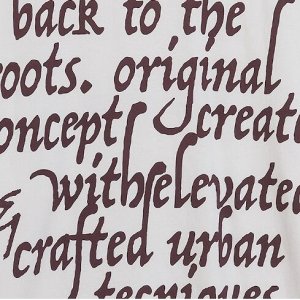 back to the
oots. original
oncept create
with elevate
crafted urban
tecniques